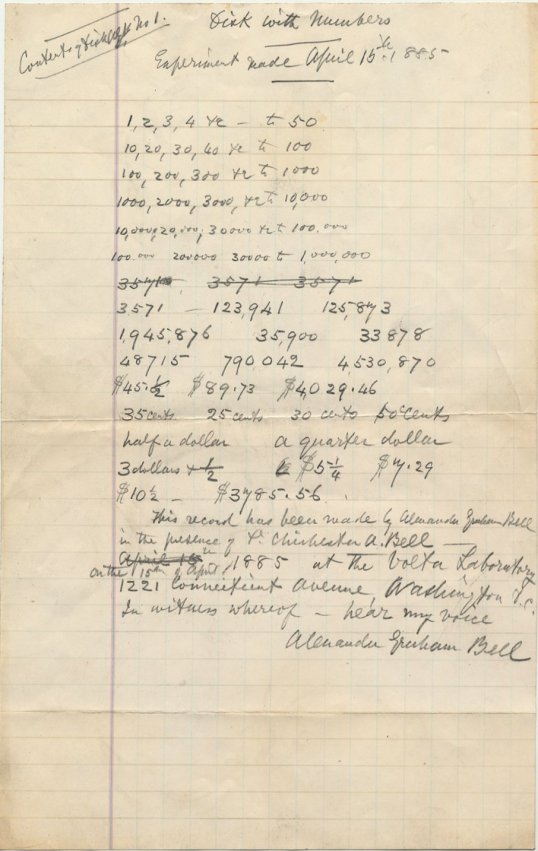 Contents of Disk No 1.
Disk with Numbers
Experiment made April 15th 1885
1, 2, 3, 4 &c — to 50
10, 20, 30, 40 &c to 100
100, 200, 300 &c to 1000
1000, 2000, 3000, &c to 10,000
10,000, 20,000, 30000 &c to 100.000
100.000 200000 30000 to 1,000,000
3571 3571 3571
3571 — 123,941 125,873
1,945,876 35,900 33878
48715 790,042 4530,870
$45.½ $89.73 $4,029.46
35 cents 25 cents 30 cents 50 cents
half a dollar a quarter dollar
3 dollars & ½ $5¼ $7.29
$10½ — $3785.56.
This record has been made by Alexander Graham Bell
in the presence of Dr. Chichester A. Bell —
April 15th
on the 15th of April, 1885 at the Volta Laboratory
1221 Connecticut Avenue, Washington D.C.
In witness whereof — hear my voice
Alexander Graham Bell